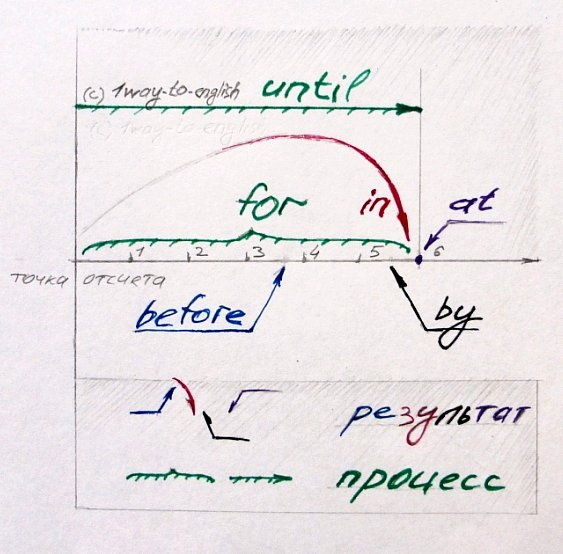 (c) 1way-to-english until
(c) 1way-to-english
for in at
1 2 3 4 5 6
точка отсчета
before by
результат
процесс